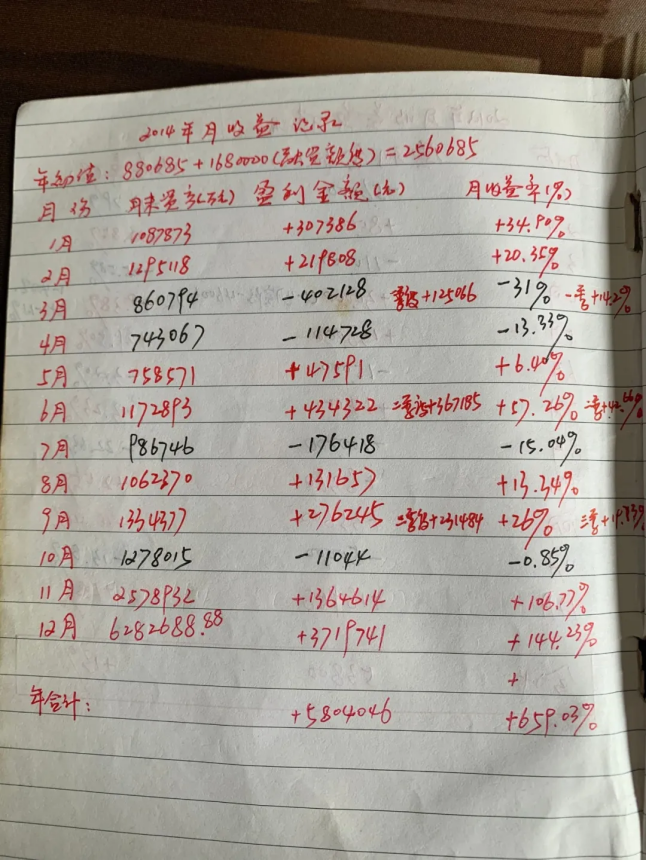 2014年月收益记录
年初值：880685+1680000(融资额度)=2560685
月份 月末资产(元) 盈利金额(元) 月收益率(%)
1月 1087873 +307386 +34.90%
2月 1295118 +219808 +20.35%
3月 860794 -402128 一季度+125066 -31% 一季+14.2%
4月 743067 -114728 -13.33%
5月 758571 +47591 +6.40%
6月 1172893 +434322 二季度+367185 +57.26% 二季+42.66%
7月 986746 -176418 -15.04%
8月 1062370 +131657 +13.34%
9月 1334377 +276245 三季度+231484 +26% 三季+19.73%
10月 1278015 -11044 -0.85%
11月 2578932 +1364614 +106.77%
12月 6282688.88 +3719741 +144.23%
+
年合计： +5804046 +659.03%